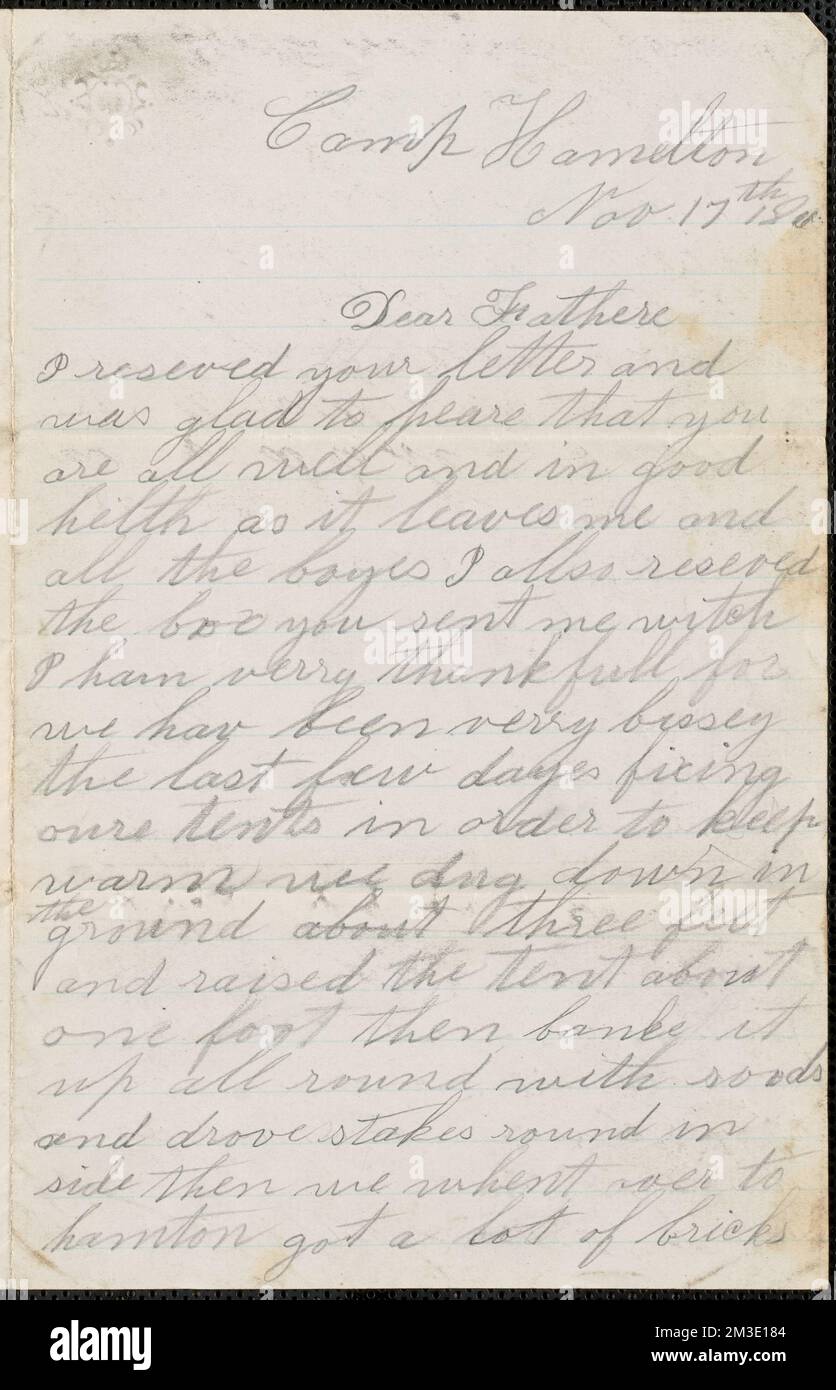 Camp Hamelton
Nov. 17th 186
Dear Fathere
I reseved your letter and
was glad to heare that you
are all well and in good
helth as it leaves me and
all the boyes I allso reseved
the box you sent me witch
I ham verry thinkfull for
we hav been verry bissey
the last few dayes fixing
oure tents in order to keep
warm wee dug down in
the
ground about three feet
and raised the tent about
one foot then banke it
up all round with soods
and drove stakes round in
side then we whent over to
hamton got a lot of bricks
alamy
alamy
Image ID: 2M3E184
www.alamy.com
alamy stock photo - 2M3E184